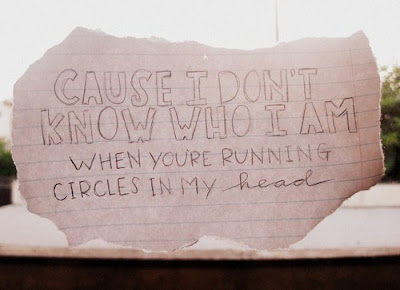 CAUSE I DON'T
KNOW WHO I AM
WHEN YOU'RE RUNNING
CIRCLES IN MY head